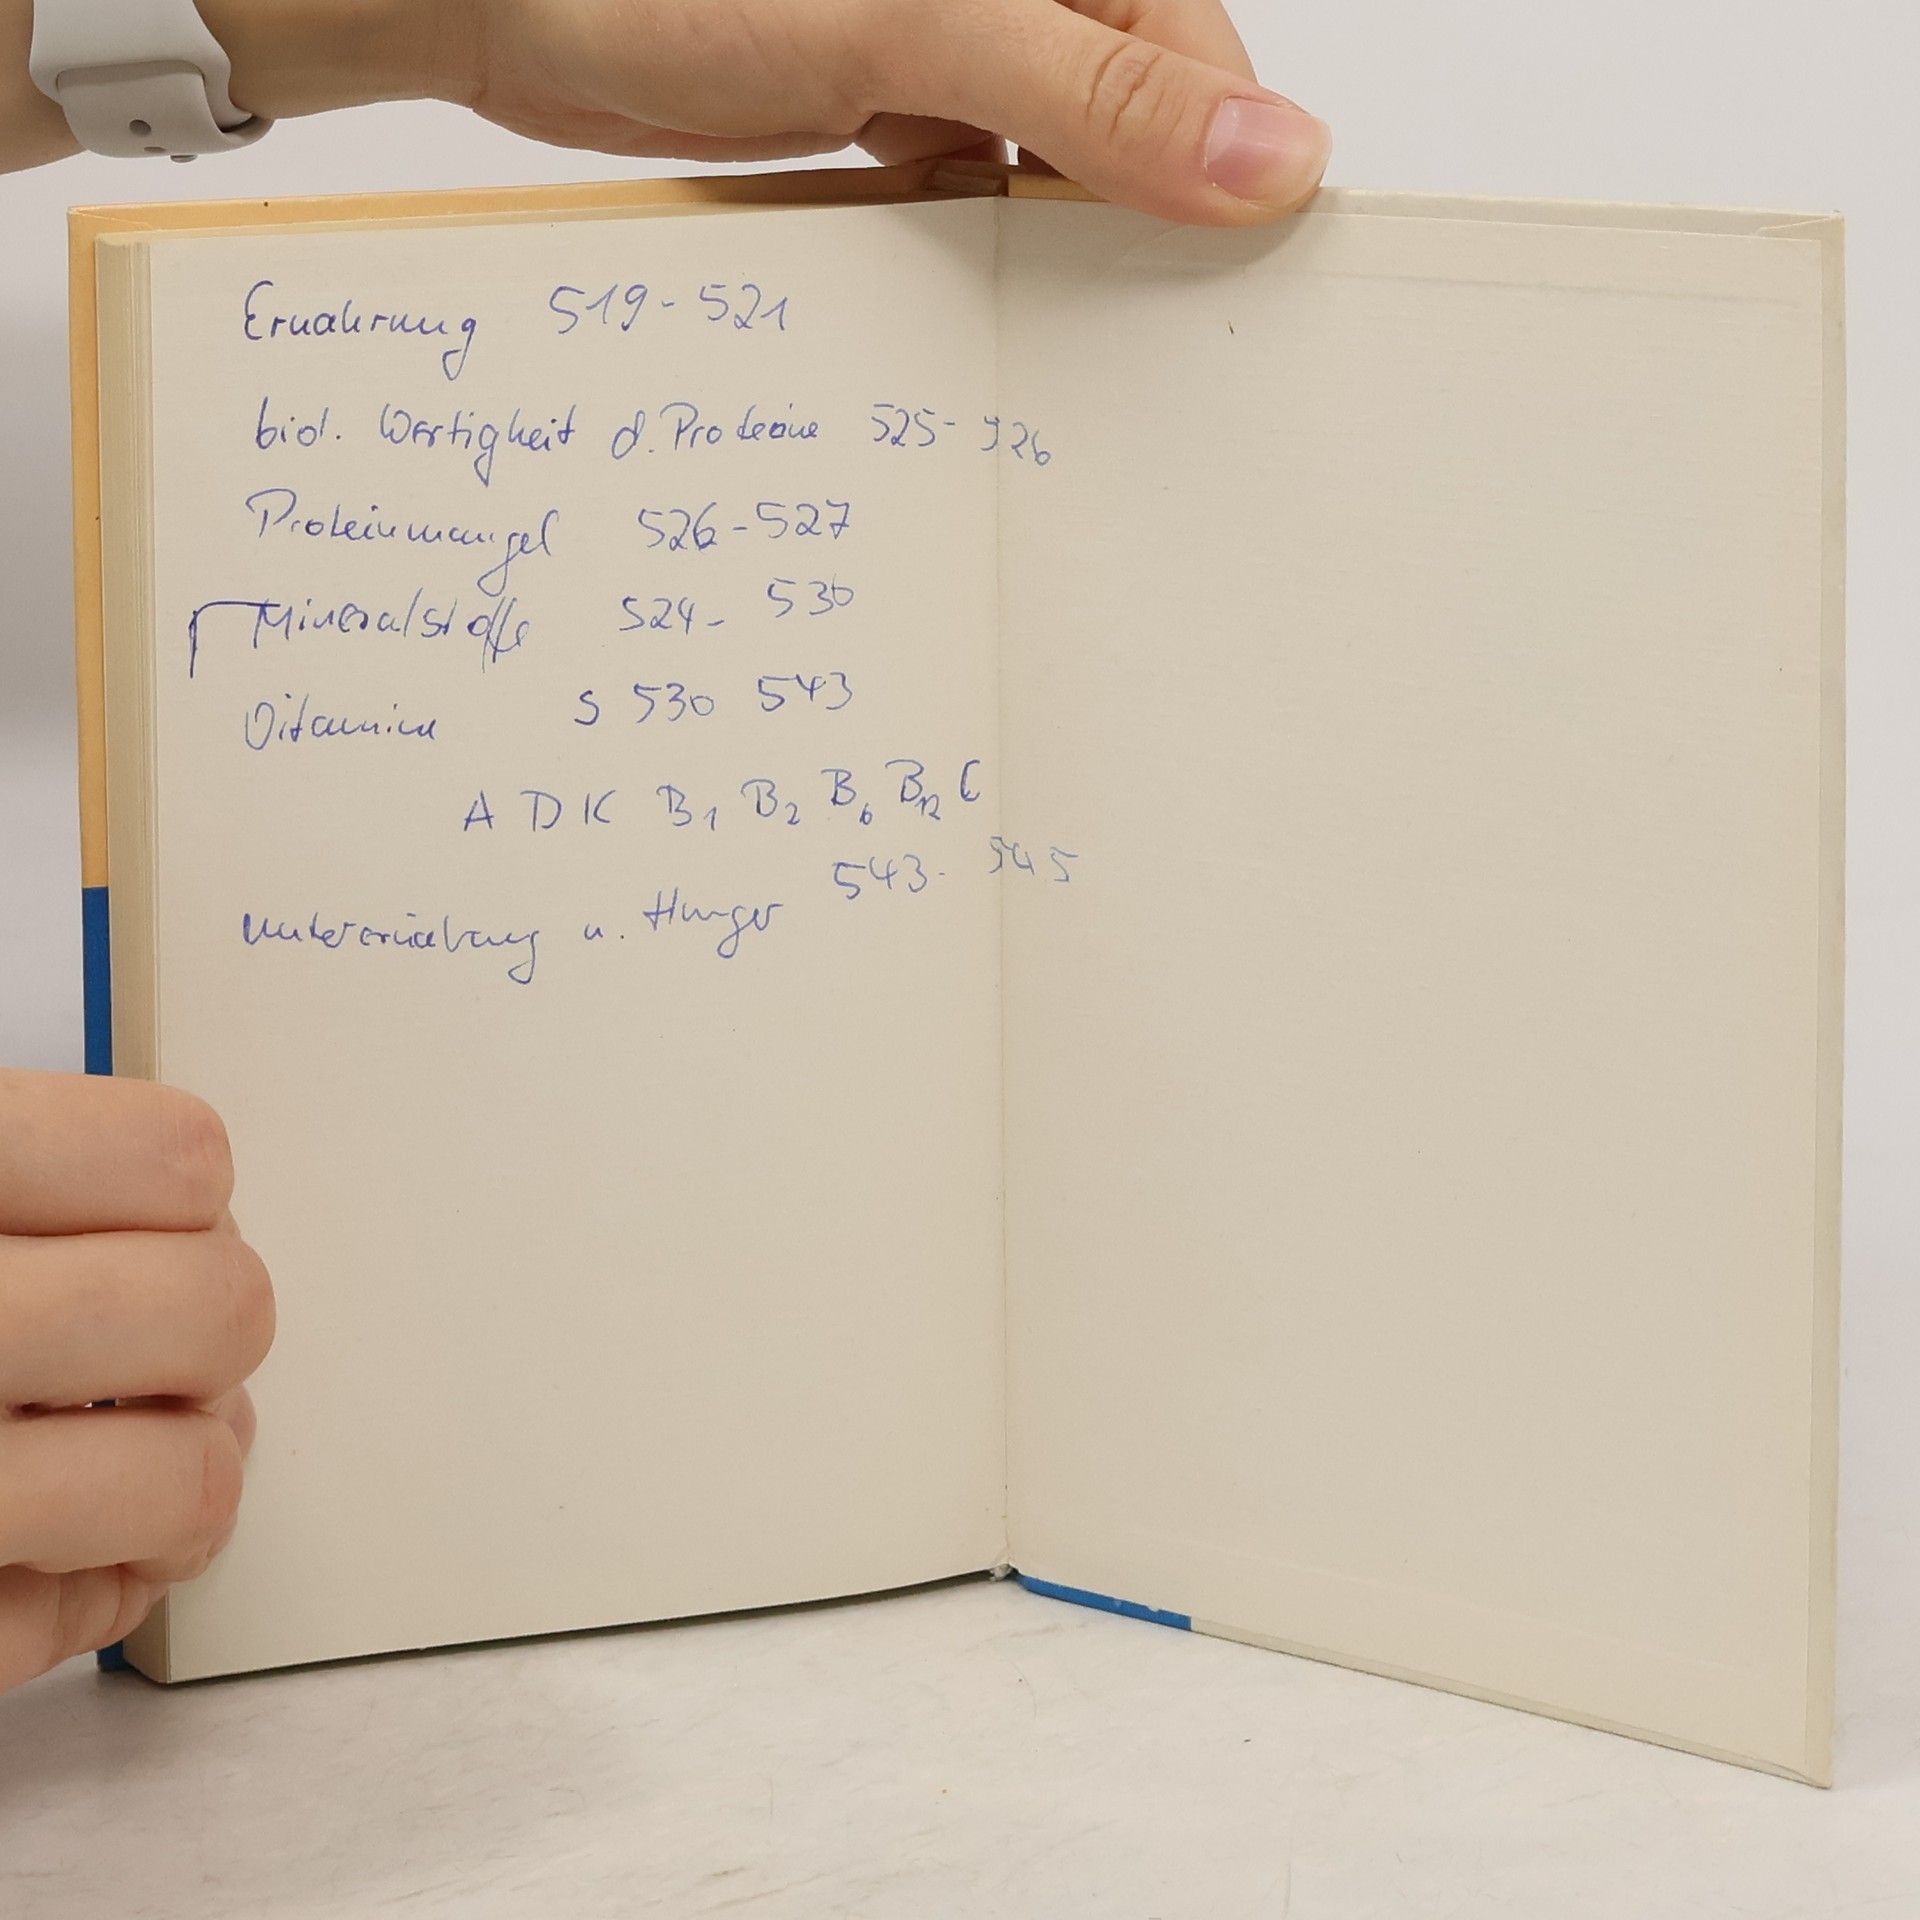 Ernahrung 519-521
biol. Wertigkeit d. Proteine 525-526
Proteinmangel 526-527
Mineralstoffe 524- 530
Vitamine S 530 543
A D K B1 B2 B6 B12 C
543- 545
Unterernährung u. Hunger